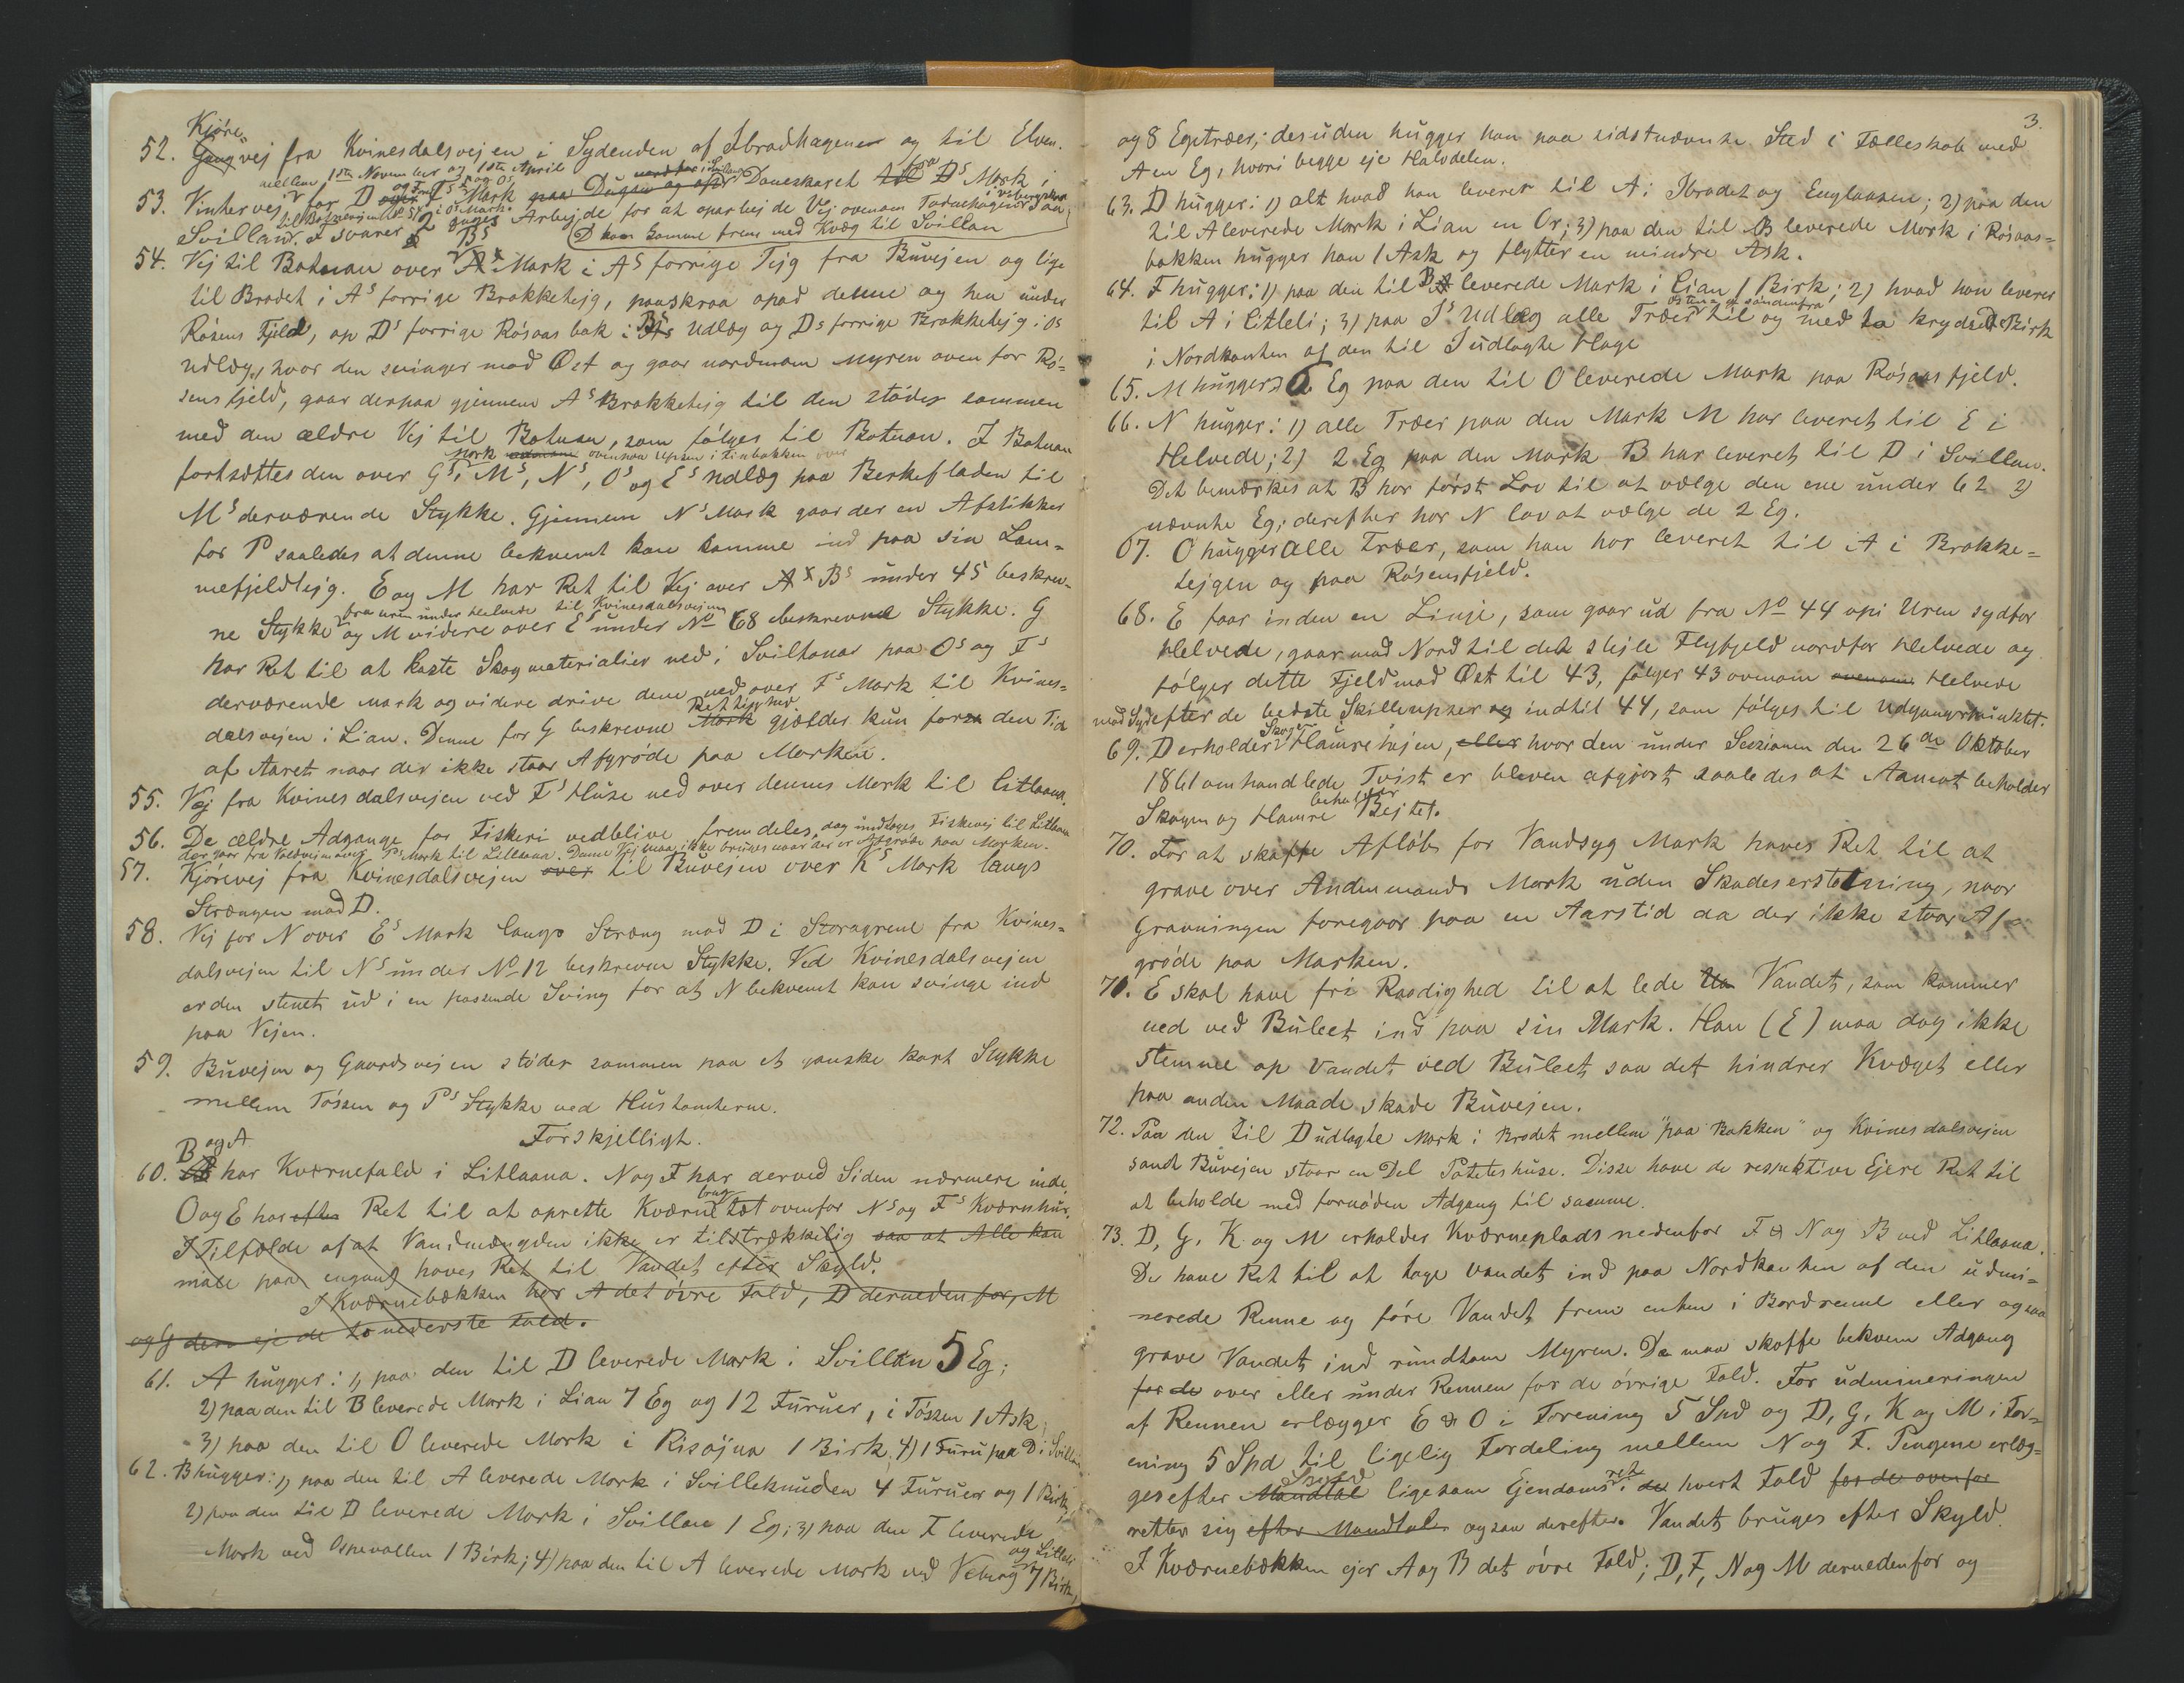 Kjøre-
52. Gangvej fra Kvinesdalsvejen i Sydenden af Ibradhagenen og til Elven.
mellem 1ste November og 1ste April
53. Vintervej for D over Fs Mark paa Dugan og efter Daneskaret til Ds Mark i
Svillan. F svarer 2 Dages Arbejde for at oparbejde Vej ovenom
D kan komme frem med Kvæg til Svillan
54. Vej til Botnan over Bs Mark i As forrige Tejg fra Buvejen og lige
til Brodet i As forrige Brokketejg, paaskraa opad denne og hen under
Rosens Fjeld, op Ds forrige Rósaas bak i Bs Udlæg og Ds forrige Brokketejg i Os
Udlæg, hvor den svinger mod Øst og gaar nordenom Myren oven for Ró-
sens fjeld, gaar derpaa gjennem As Brokketejg til den stóder sammen
med den ældre Vej til Botnan, som fólges til Botnan. I Botnan
Mork ovenom ovenpaa Upsen i Linbakken over
fortsættes den over Gs, Ms, Ns, Os og Es Udlæg paa Berkefladen til
Ms derværende Stykke. Gjennem Ns Mark gaar der en Afstikker
for P saaledes at denne bekvemt kan komme ind paa sin Lom-
mefjeldtejg. E og M har Ret til Vej over A Bs under 45 beskrev-
fra uren under Helvede til Kvinesdalsvejen
ne Stykke og M videre over Es under No 68 beskrevne Stykke. G
har Ret til at kaste Skogmaterialier ned i Sviltonar paa Os og Fs
derværende Mark og videre drive dem ned over Fs Mark til Kvines-
Rettighed
dalsvejen i Lian. Denne for G beskrevne Mark gjælder kun for den Tid
af Aaret naar der ikke staar Afgróde paa Marken.
55. Vej fra Kvinesdalsvejen ved Fs Huse ned over dennes Mark til Litlaana.
56. De ældre Adgange for Fiskeri vedblive fremdeles, dog undtages Fiskevej til Litlaana
der gaar fra Voldvejen over Ps Mark til Litlaana. Denne Vej maa ikke bruges naar der er Afgróde paa Marken.
57. Kjórevej fra Kvinesdalsvejen over til Buvejen over Ks Mark langs
Strængen mod D.
58. Vej for N over Es Mark langs Stræng mod D i Storagrene fra Kvines-
dalsvejen til Ns under No 12 beskreven Stykke. Ved Kvinesdalsvejen
er den stenet ud i en passende Sving for at N bekvemt kan svinge ind
paa Vejen.
59. Buvejen og Gaardsvejen stóder sammen paa et ganske kort Stykke
mellem Tóssen og Ps Stykke ved Hustomterne.
Forskjelligt.
B og A
60. har Kværnefald i Litlaana. N og F har derved Siden nærmere inde.
brug
O og E har efter Ret til at oprette Kværne tæt ovenfor Ns og Fs Kværnhus.
I Tilfælde af at Vandmængden ikke er tilstrækkelig saa at Alle kan
male paa engang haves Ret til Vandet efter Skyld.
I Kværnebækken har A det óvre Fald, D dernedenfor, M
og G dem eje de to nederste Fald.
61. A hugger: 1) paa den til D leverede Mark i Svillan 5 Eg;
2) paa den til B leverede Mark i Lian 7 Eg og 12 Furuer, i Tóssen 1 Ask;
3) paa den til O leverede Mork i Risójna 1 Birk; 4) 1 Furu paa D i Svillan
62. B hugger: 1) paa den til A leverede Mark i Svilleknuden 4 Furuer og 1 Birk;
2) paa den til D leverede Mark i Svillan 1 Eg; 3) paa den F leverede
Mark ved Ospevollen 1 Birk; 4) paa den til A leverede Mark ved Veberg og Litleli 7 Birk,
3.
og 8 Egetræer; desuden hugger han paa sidstnævnte Sted i Fælleskab med
A en Eg, hvori begge eje Halvdelen.
63. D hugger: 1) alt hvad han leverer til A i Ibradet og Englaasen; 2) paa den
til A leverede Mark i Lian en Or; 3) paa den til B leverede Mork i Rósaas-
bakken hugger han 1 Ask og flytter en mindre Ask.
64. F hugger: 1) paa den til B leverede Mark i Lian 1 Birk; 2) hvad han leverer
østen og søndenfra
til A i Litleli; 3) paa Is Udlæg alle Træer til og med to krydsede Birk
i Nordkanten af den til I udlagte Hage
65. M hugger 6 Eg paa den til O leverede Mark paa Rósaasfjeld.
66. N hugger: 1) alle Træer paa den Mark M har leveret til E i
Helvede; 2) 2 Eg paa den Mark B har leveret til D i Svillan.
Det bemærkes at B har fórst Lov til at vælge den ene under 62 2)
nævnte Eg; derefter har N lov at vælge de 2 Eg.
67. O hugger alle Træer, som han har leveret til A i Brokke-
tejgen og paa Rósensfjeld.
68. E faar inden en Linje, som gaar ud fra No 44 opi Uren sydfor
Helvede, gaar mod Nord til det stejle Flyfjeld nordfor Helvede og
fólger dette Fjeld mod Øst til 43, fólger 43 ovenom ovenom Helvede
mod Syd efter de bedste Skilleupser og indtil 44, som fólges til Udgangspunktet.
Skogen
69. D erholder i Hamrehejen, eller hvor den under Seezionen den 26de Oktober
1861 omhandlede Tvist er bleven afgjort saaledes at Aamot beholder
beholder
Skogen og Hamre Bejtet.
70. For at skaffe Afløb for Vandsyg Mark haves Ret til at
grave over Andenmands Mark uden Skadeserstatning, naar
Gravningen foregaar paa en Aarstid da der ikke staar Af-
gróde paa Marken.
71. E skal have fri Raadighed til at lede Vandet, som kommer
ned ved Buleet ind paa sin Mark. Han (E) maa dog ikke
stemme op Vandet ved Buleet saa det hindrer Kvæget eller
paa anden Maade skade Buvejen.
72. Paa den til D udlagte Mark i Brodet mellem "paa Bakken" og Kvinesdalsvejen
samt Buvejen staar en Del Poteteshuse. Disse have de respektive Ejere Ret til
at beholde med fornóden Adgang til samme.
73. D, G, K og M erholder Kværneplads nedenfor F & N og B ved Litlaana.
De have Ret til at tage Vandet ind paa Nordkanten af den udmi-
nerede Renne og fóre Vandet frem enten i Bordrenne eller ogsaa
grave Vandet ind rundtom Myren. De maa skaffe bekvem Adgang
for de over eller under Rennen for de óvrige Fald. For udmineringen
af Rennen erlægger E & O i Forening 5 Spd og D, G, K og M i For-
ening 5 Spd til ligelig Fordeling mellem N og F. Pengene erlæg-
Skyld
ges efter Mandtal ligesom Ejendomsret. de hvert Fald for de ovenfor
retter sig efter Mandtal ogsaa derefter. Vandet bruges efter Skyld.
I Kværnebækken ejer A og B det óvre Fald; D, F, N og M dernedenfor og